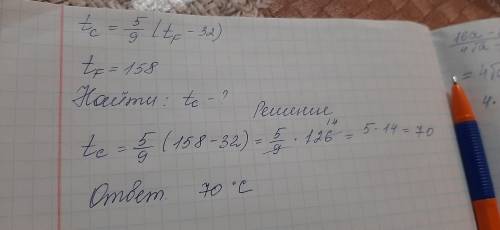 t_C = 5/9 (t_F - 32)
t_F = 158
Найти: t_C - ?
Решение
t_C = 5/9 (158 - 32) = 5/9 · 126 14 = 5 · 14 = 70
Ответ 70 °C
16a -
= 4
4 ·